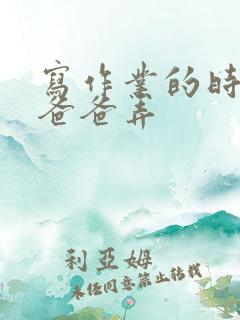 寫作業的時
爸爸弄
利亞姆
未经同意禁止转载